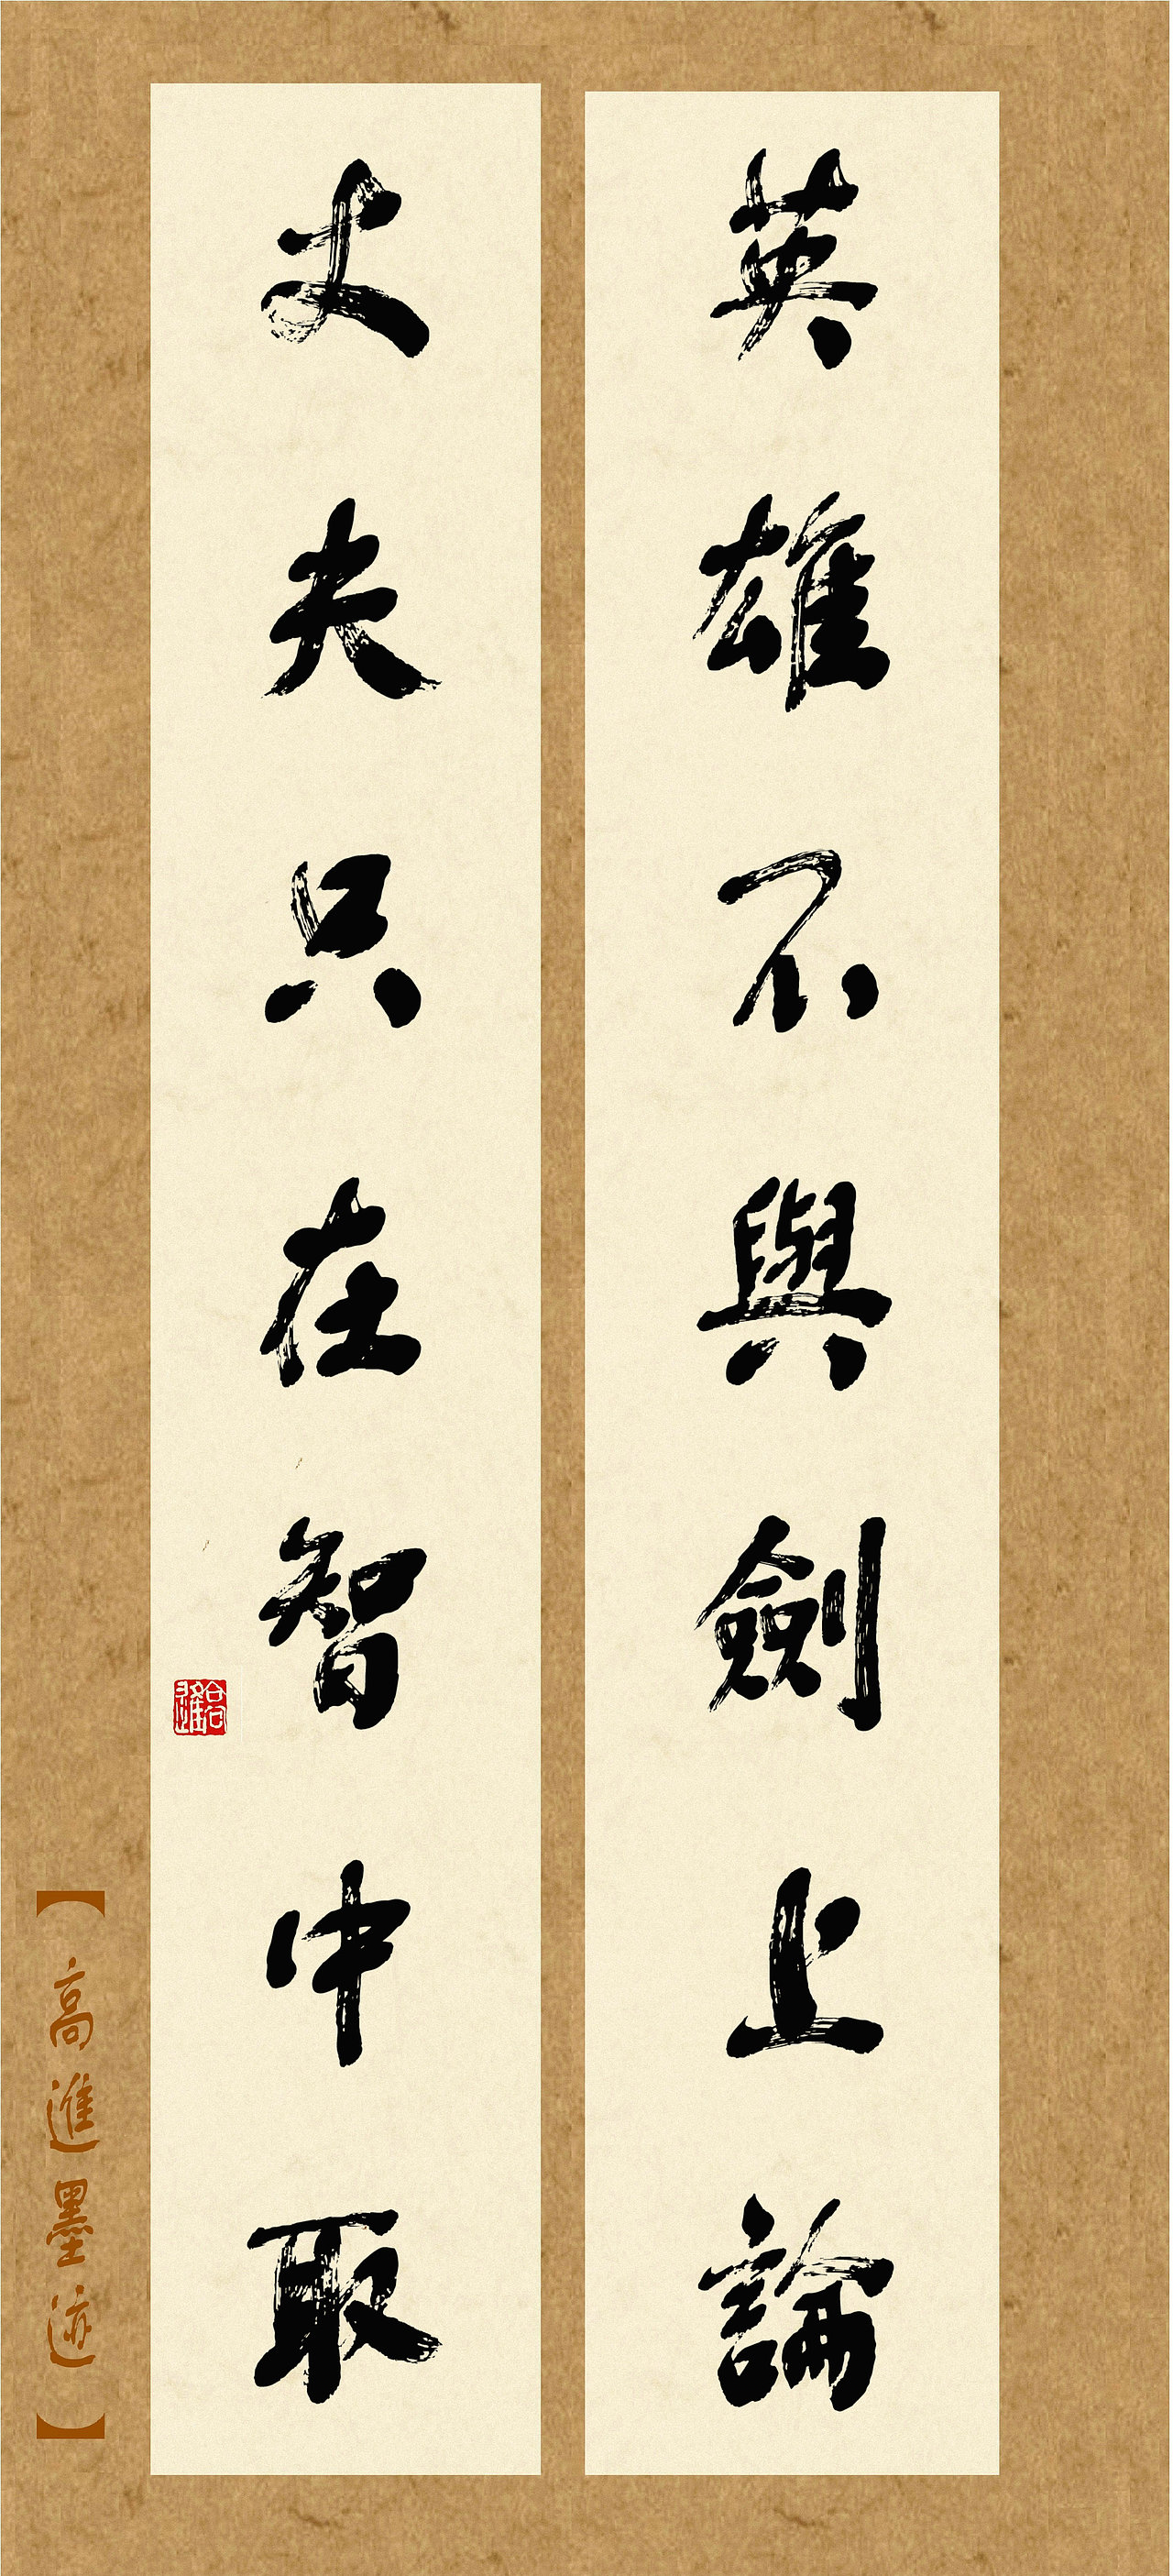 英雄不與劍上論
丈夫只在智中取
高進
【高進墨迹】